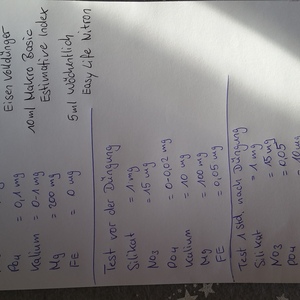 PO4 = 0,1 mg Eisen Volldünger
Kalium = 0-1 mg 10ml Makro Basic
Mg = 200 mg Estimative Index
FE = 0 mg 5ml Wöchentlich
Easy Life Nitron
Test vor der Düngung
Silikat = 1 mg
NO3 = 15 mg
PO4 = 0-0,02 mg
Kalium = 10 mg
Mg = 100 mg
FE = 0,05 mg
Test 1 std. nach Düngung
Silikat = 1 mg
NO3 = 15 mg
PO4 = 0,05
= 10 mg